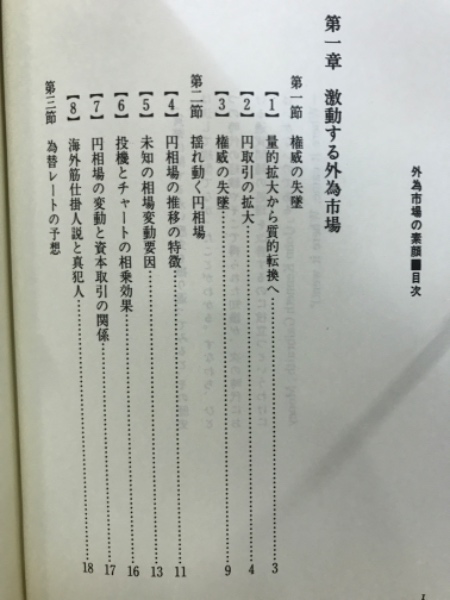 外為市場の素顔■目次
第一章 激動する外為市場
第一節 権威の失墜
【1】 量的拡大から質的転換へ……3
【2】 円取引の拡大……4
【3】 権威の失墜……9
第二節 揺れ動く円相場
【4】 円相場の推移の特徴……11
【5】 未知の相場変動要因……13
【6】 投機とチャートの相乗効果……16
【7】 円相場の変動と資本取引の関係……17
【8】 海外筋仕掛人説と真犯人……18
第三節 為替レートの予想
1